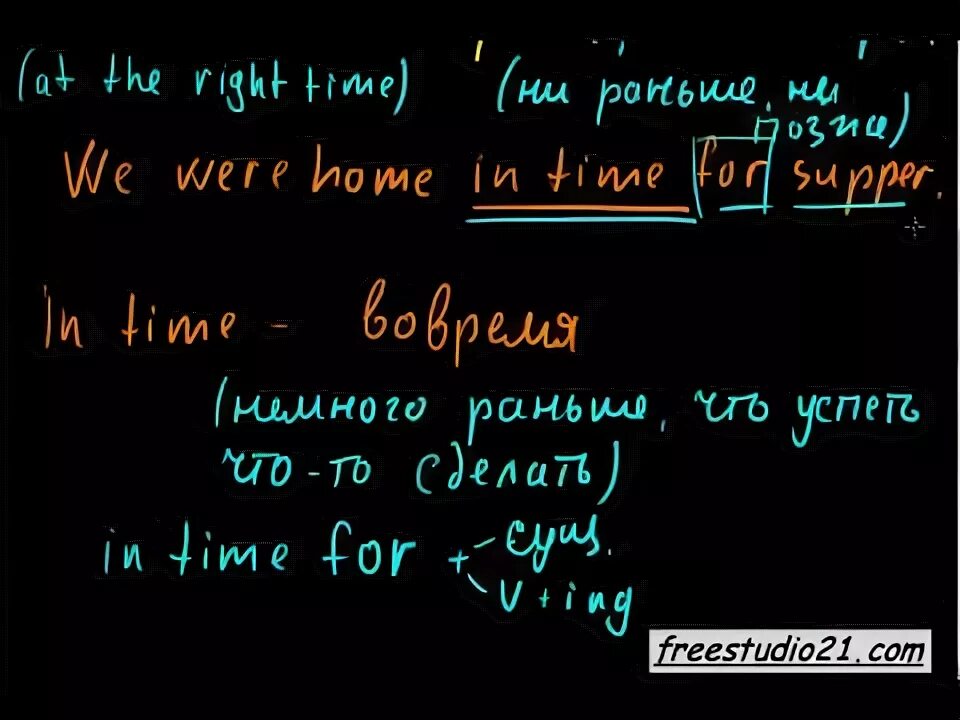 (at the right time) (ни раньше, ни
позже)
We were home in time for supper.
In time - вовремя
(немного раньше, что успеть
что-то сделать)
in time for + сущ.
V + ing
freestudio21.com